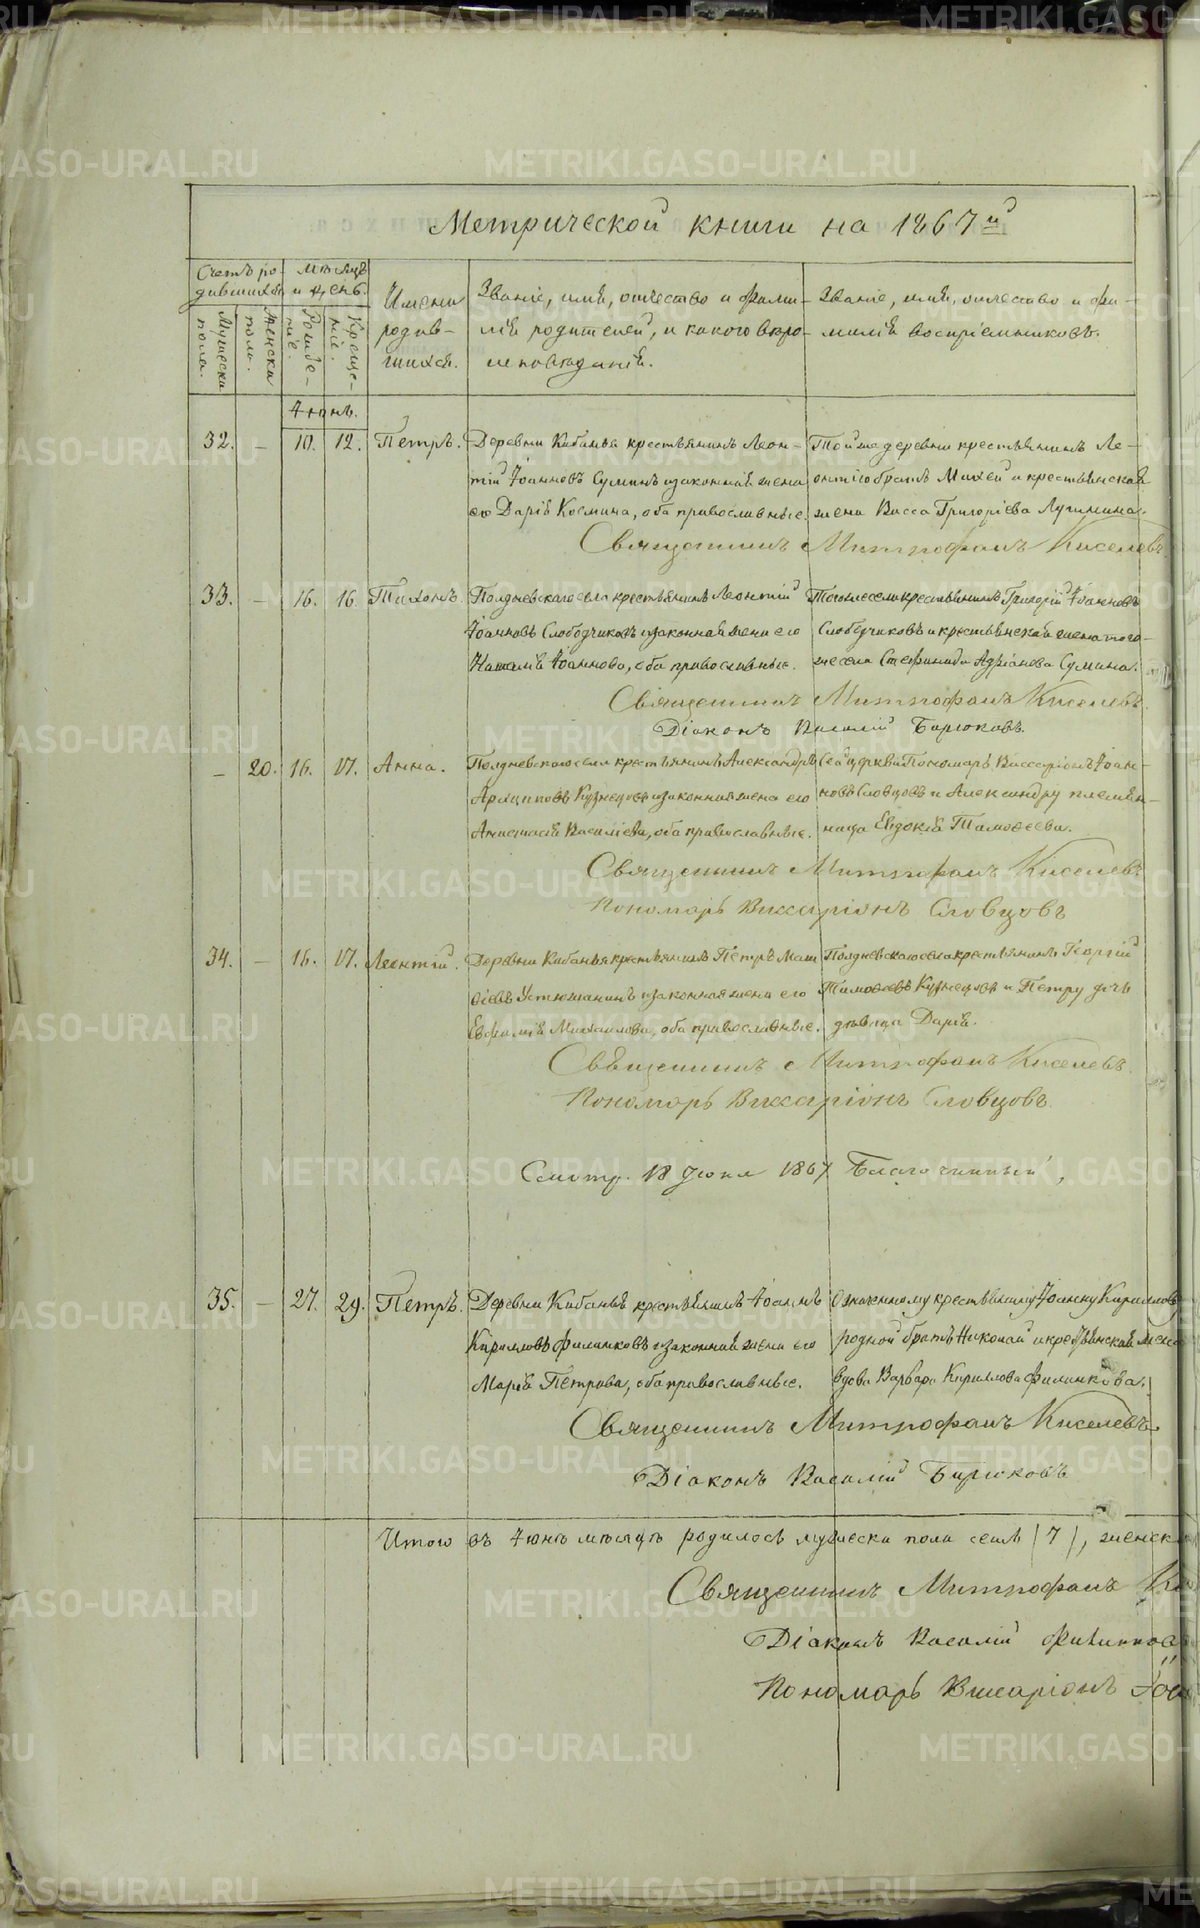 Метрической книги на 1867й
Счетъ ро- дившихся.
Мѣсяцъ и день.
Имена родив- шихся.
Званіе, имя, отчество и фами- лія родителей, и какого вѣро- исповѣданія.
Званіе, имя, отчество и фа- милія воспріемниковъ.
Мужеска пола.
Женска пола.
Рожде- ніе.
Креще- ніе.
Іюнь.
32. — 10. 12. Петръ. Деревни Кабанья крестьянинъ Леон- Тойже деревни крестьянинъ Ле-
тій Іоанновъ Суминъ и законная жена онтію братъ Михей и крестьянская
его Дарія Космина, оба православные. жена Васса Григоріева Лугинина.
Священникъ Митрофанъ Киселевъ
33. — 16. 16. Тихонъ. Полдневскаго села крестьянинъ Леонтій Тогоже села крестьянинъ Григорій Іоанновъ
Іоанновъ Слободчиковъ и законная жена его Слободчиковъ и крестьянская жена того-
Наталія Іоаннова, оба православные. же села Стефанида Адріанова Сумина.
Священникъ Митрофанъ Киселевъ.
Діаконъ Василій Бирюковъ.
— 20. 16. 17. Анна. Полдневскаго села крестьянинъ Александръ Сей церкви Пономарь Виссаріонъ Іоан-
Архиповъ Кузнецовъ и законная жена его новъ Словцовъ и Александру племян-
Анастасія Василіева, оба православные. ница Евдокія Тимоѳеева.
Священникъ Митрофанъ Киселевъ
Пономарь Виссаріонъ Словцовъ
34. — 16. 17. Леонтій. Деревни Кабанья крестьянинъ Петръ Мат Полдневскаго села крестьянинъ Георгій
ѳіевъ Устюжанинъ и законная жена его Тимоѳеевъ Кузнецовъ и Петру дочь
Евфимія Михаилова, оба православные. дѣвица Дарія.
Священникъ Митрофанъ Киселевъ.
Пономарь Виссаріонъ Словцовъ
Смотр. 18 Іюля 1867 Благочинный
35. — 27. 29. Петръ. Деревни Кабанья крестьянинъ Іоаннъ Означенному крестьянину Іоанну Кириллову
Кирилловъ Филинковъ и законная жена его родной братъ Николай и крестьянская жена
Марія Петрова, оба православные. вдова Варвара Кириллова Филинкова.
Священникъ Митрофанъ Киселевъ
Діаконъ Василій Бирюковъ
Итого въ Іюнѣ мѣсяцѣ родилось мужеска пола семь (7), женск
Священникъ Митрофанъ Ки
Діаконъ Василій
Пономарь Виссаріонъ
METRIKI.GASO-URAL.RU